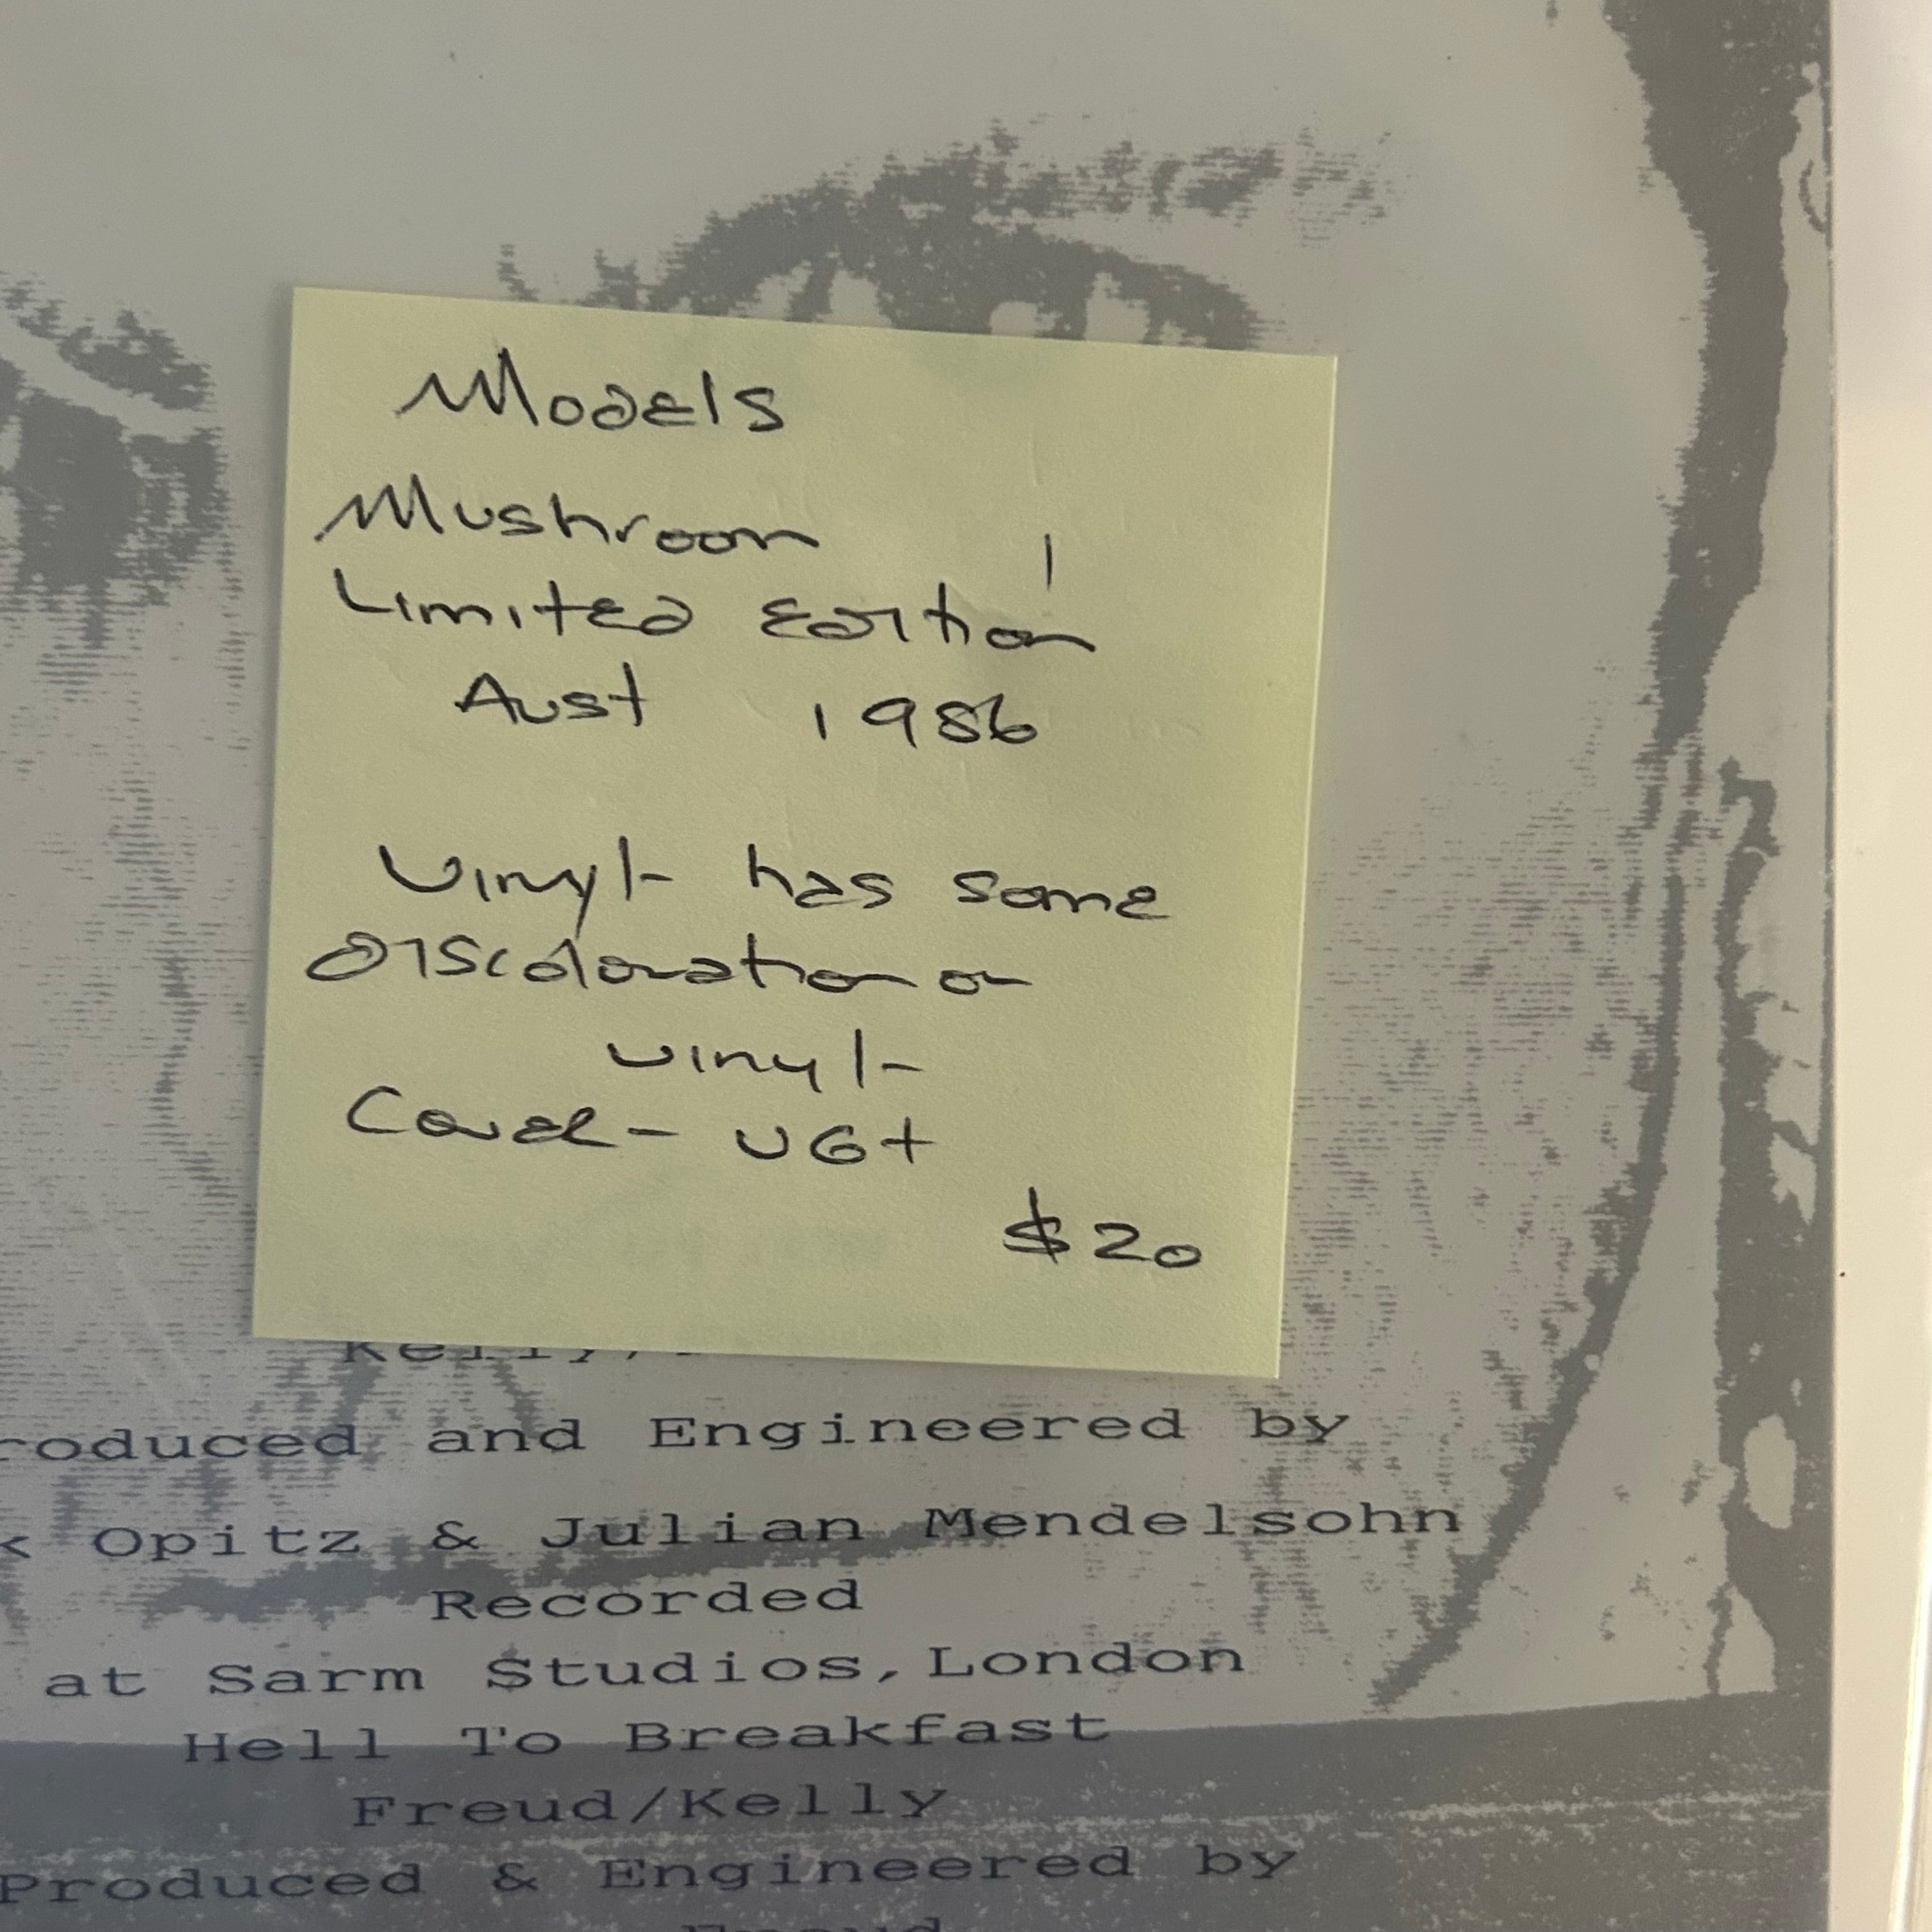 Models
Mushroom
Limited Edition
Aust 1986
Vinyl- has some
Discoloration on
vinyl-
Cover- VG+
$20
Kelly,
roduced and Engineered by
k Opitz & Julian Mendelsohn
Recorded
at Sarm Studios, London
Hell To Breakfast
Freud/Kelly
Produced & Engineered by
Freud